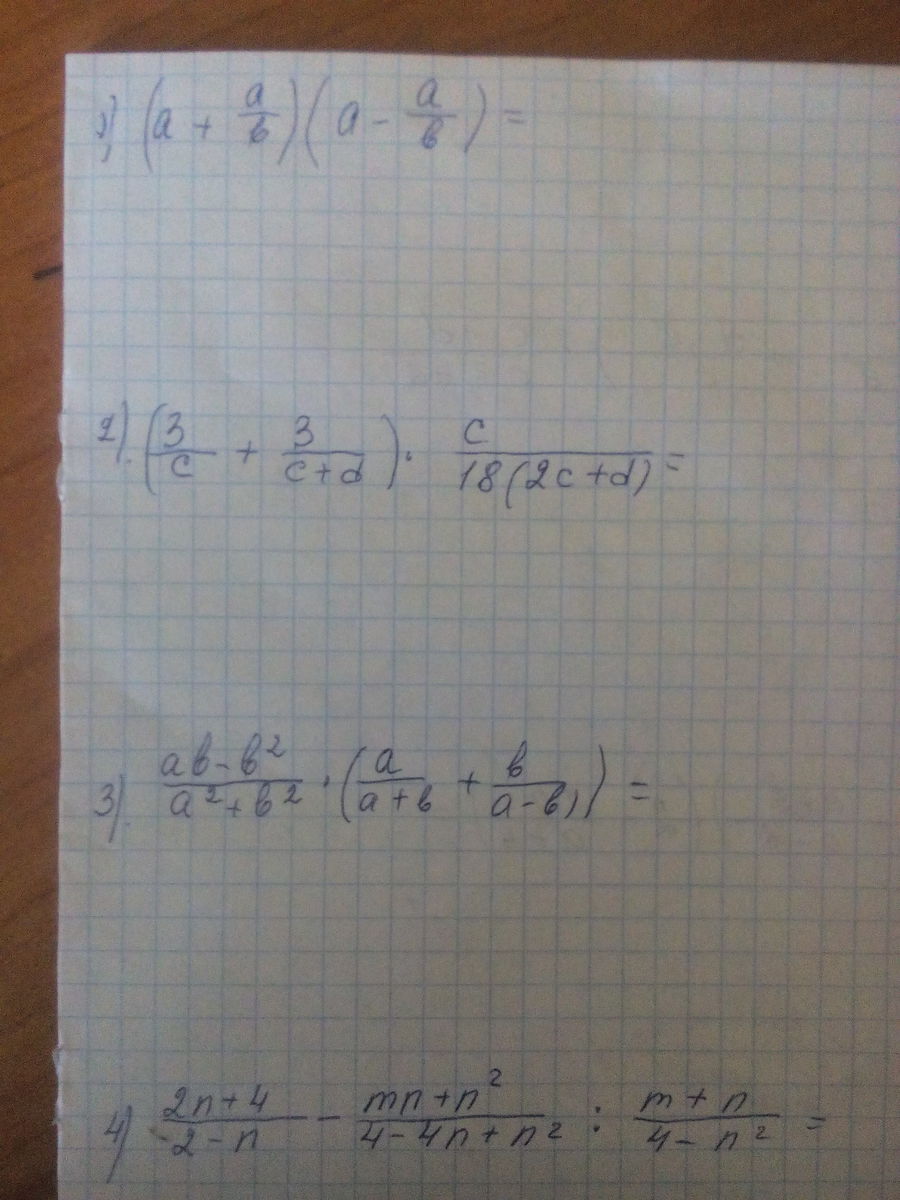 1) (a + a/в)(a - a/в) =
2). (3/c + 3/(c+d)) · c/(18(2c+d)) =
3). (aв-в²)/(a²+в²) · (a/(a+в) + в/(a-в)) =
4) (2n+4)/(2-n) - (mn+n²)/(4-4n+n²) : (m+n)/(4-n²) =